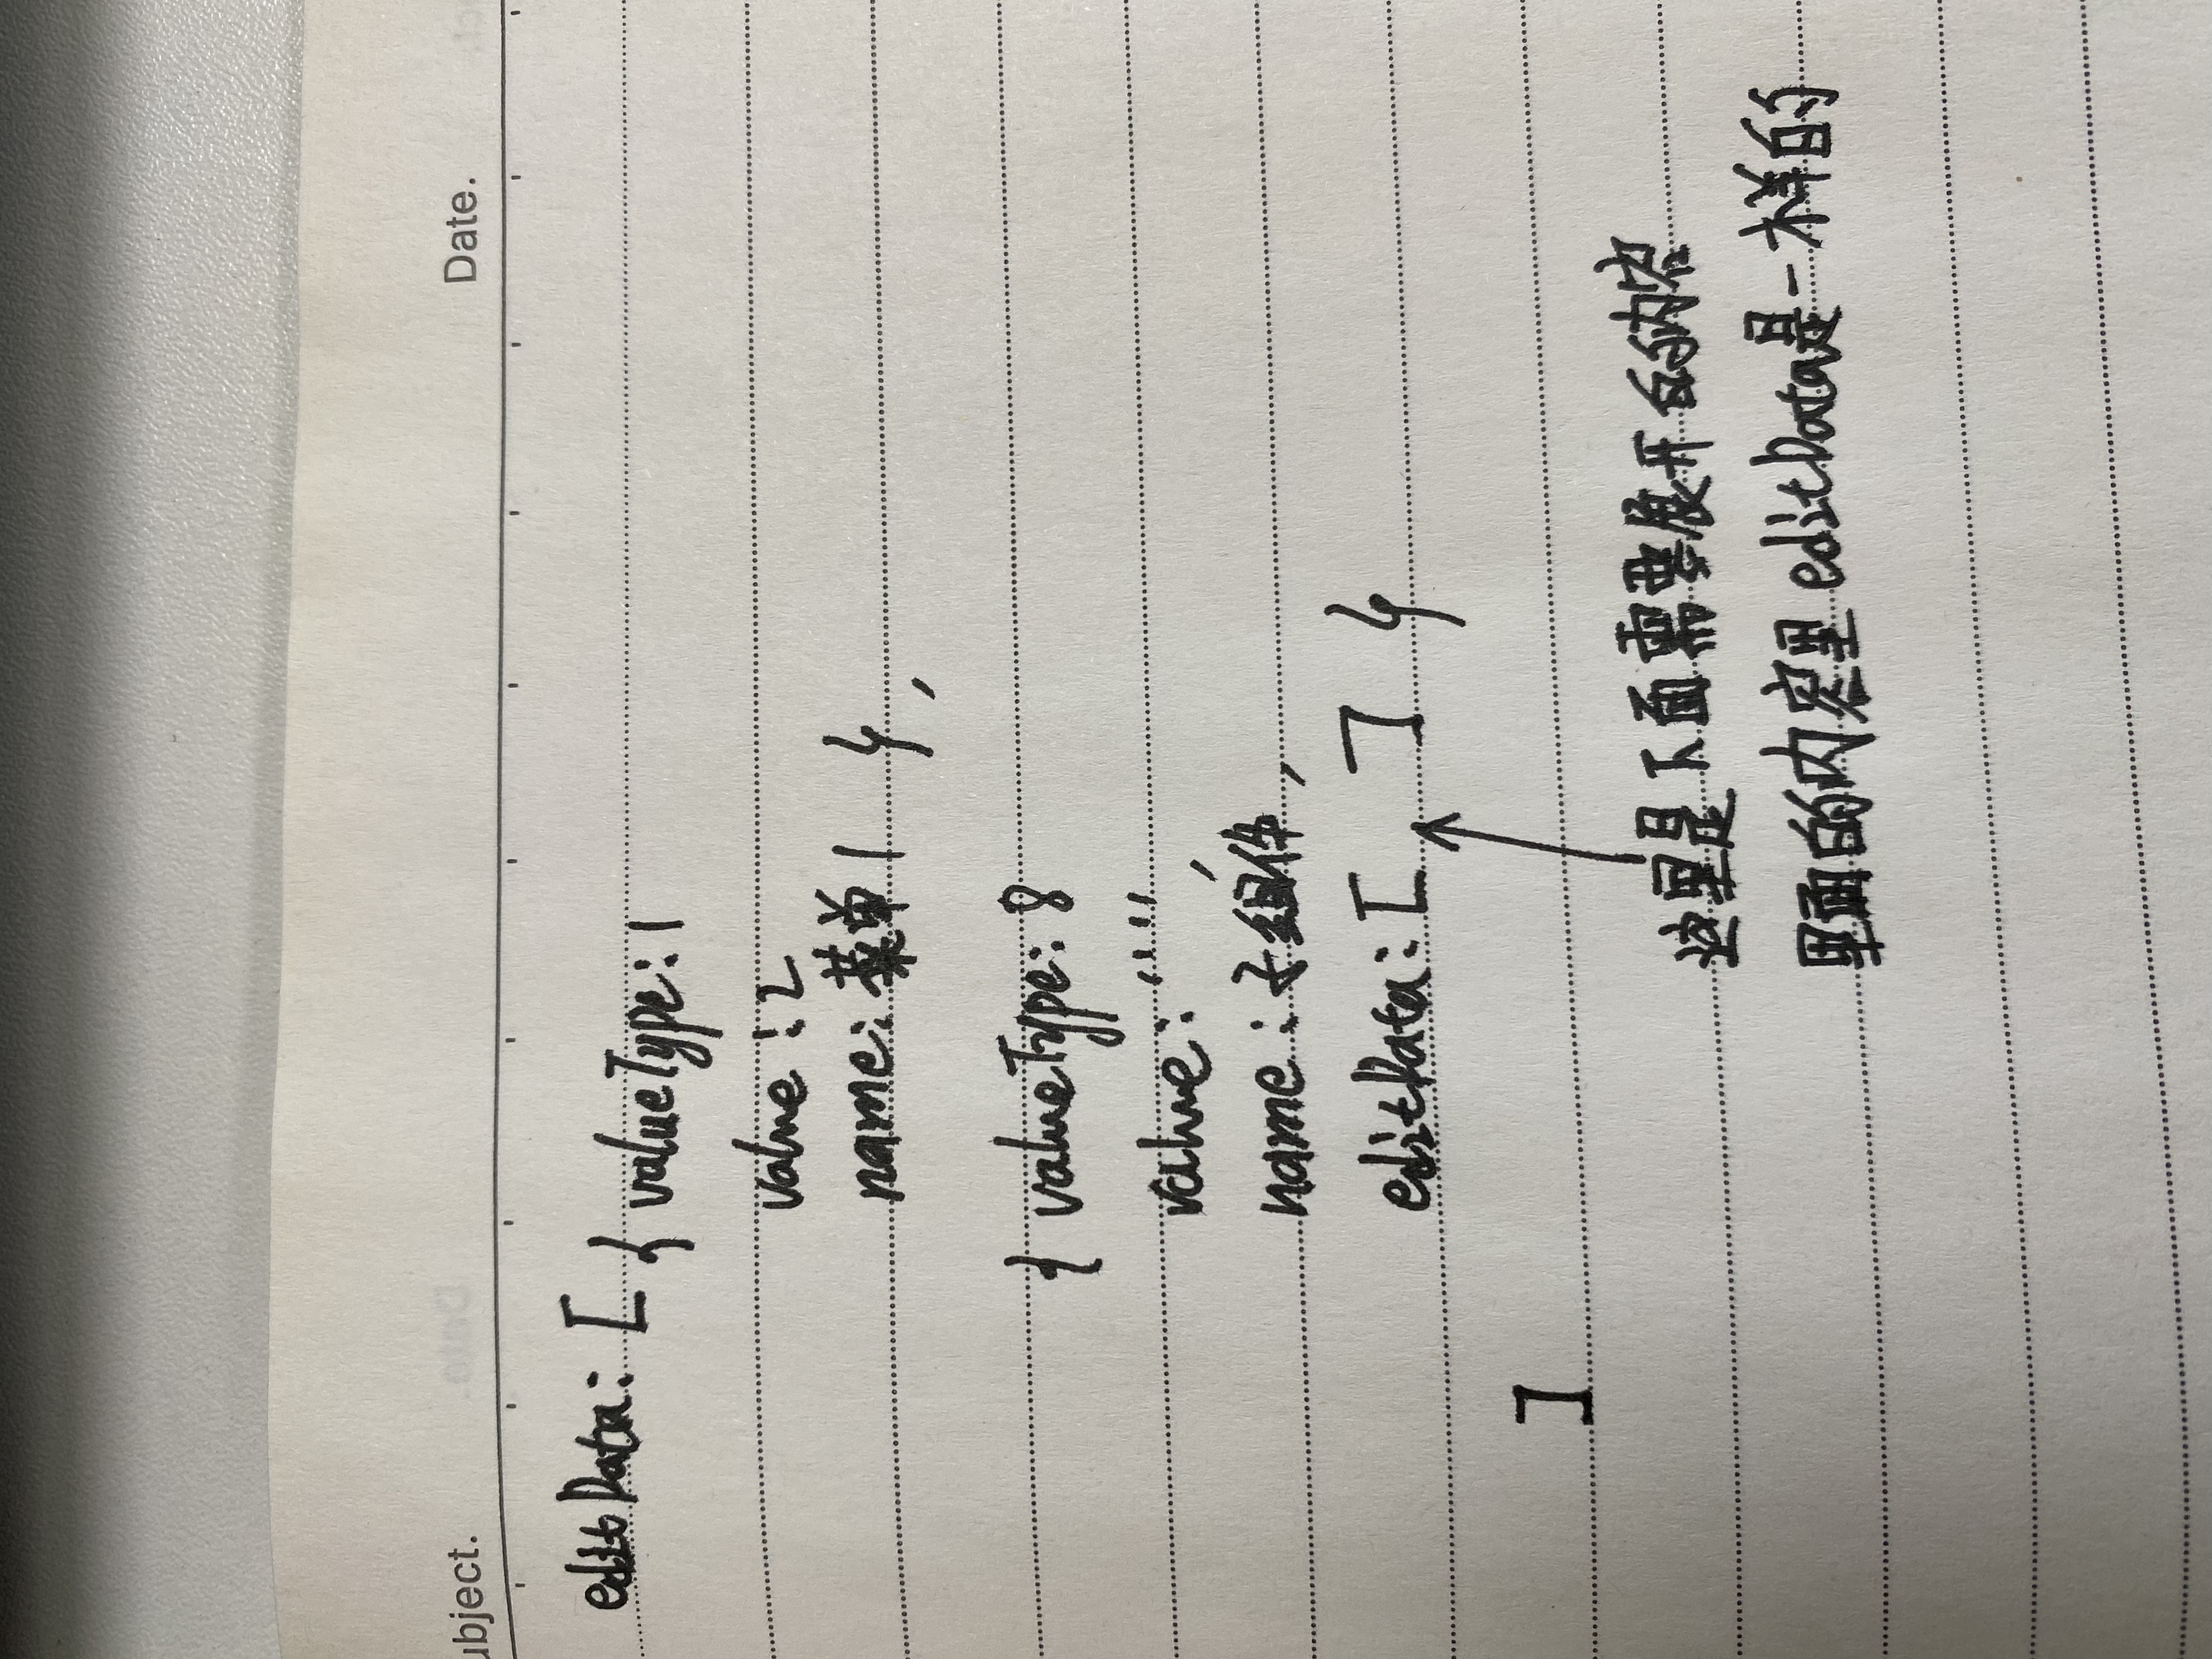 Date.
editData: [ { valueType: 1
value: 2
name: 菜单1 },
{ valueType: 8
value: "",
name: 子组件,
editData: [ ] }
]
这里是下面需要展开的内容
里面的内容里editData是一样的